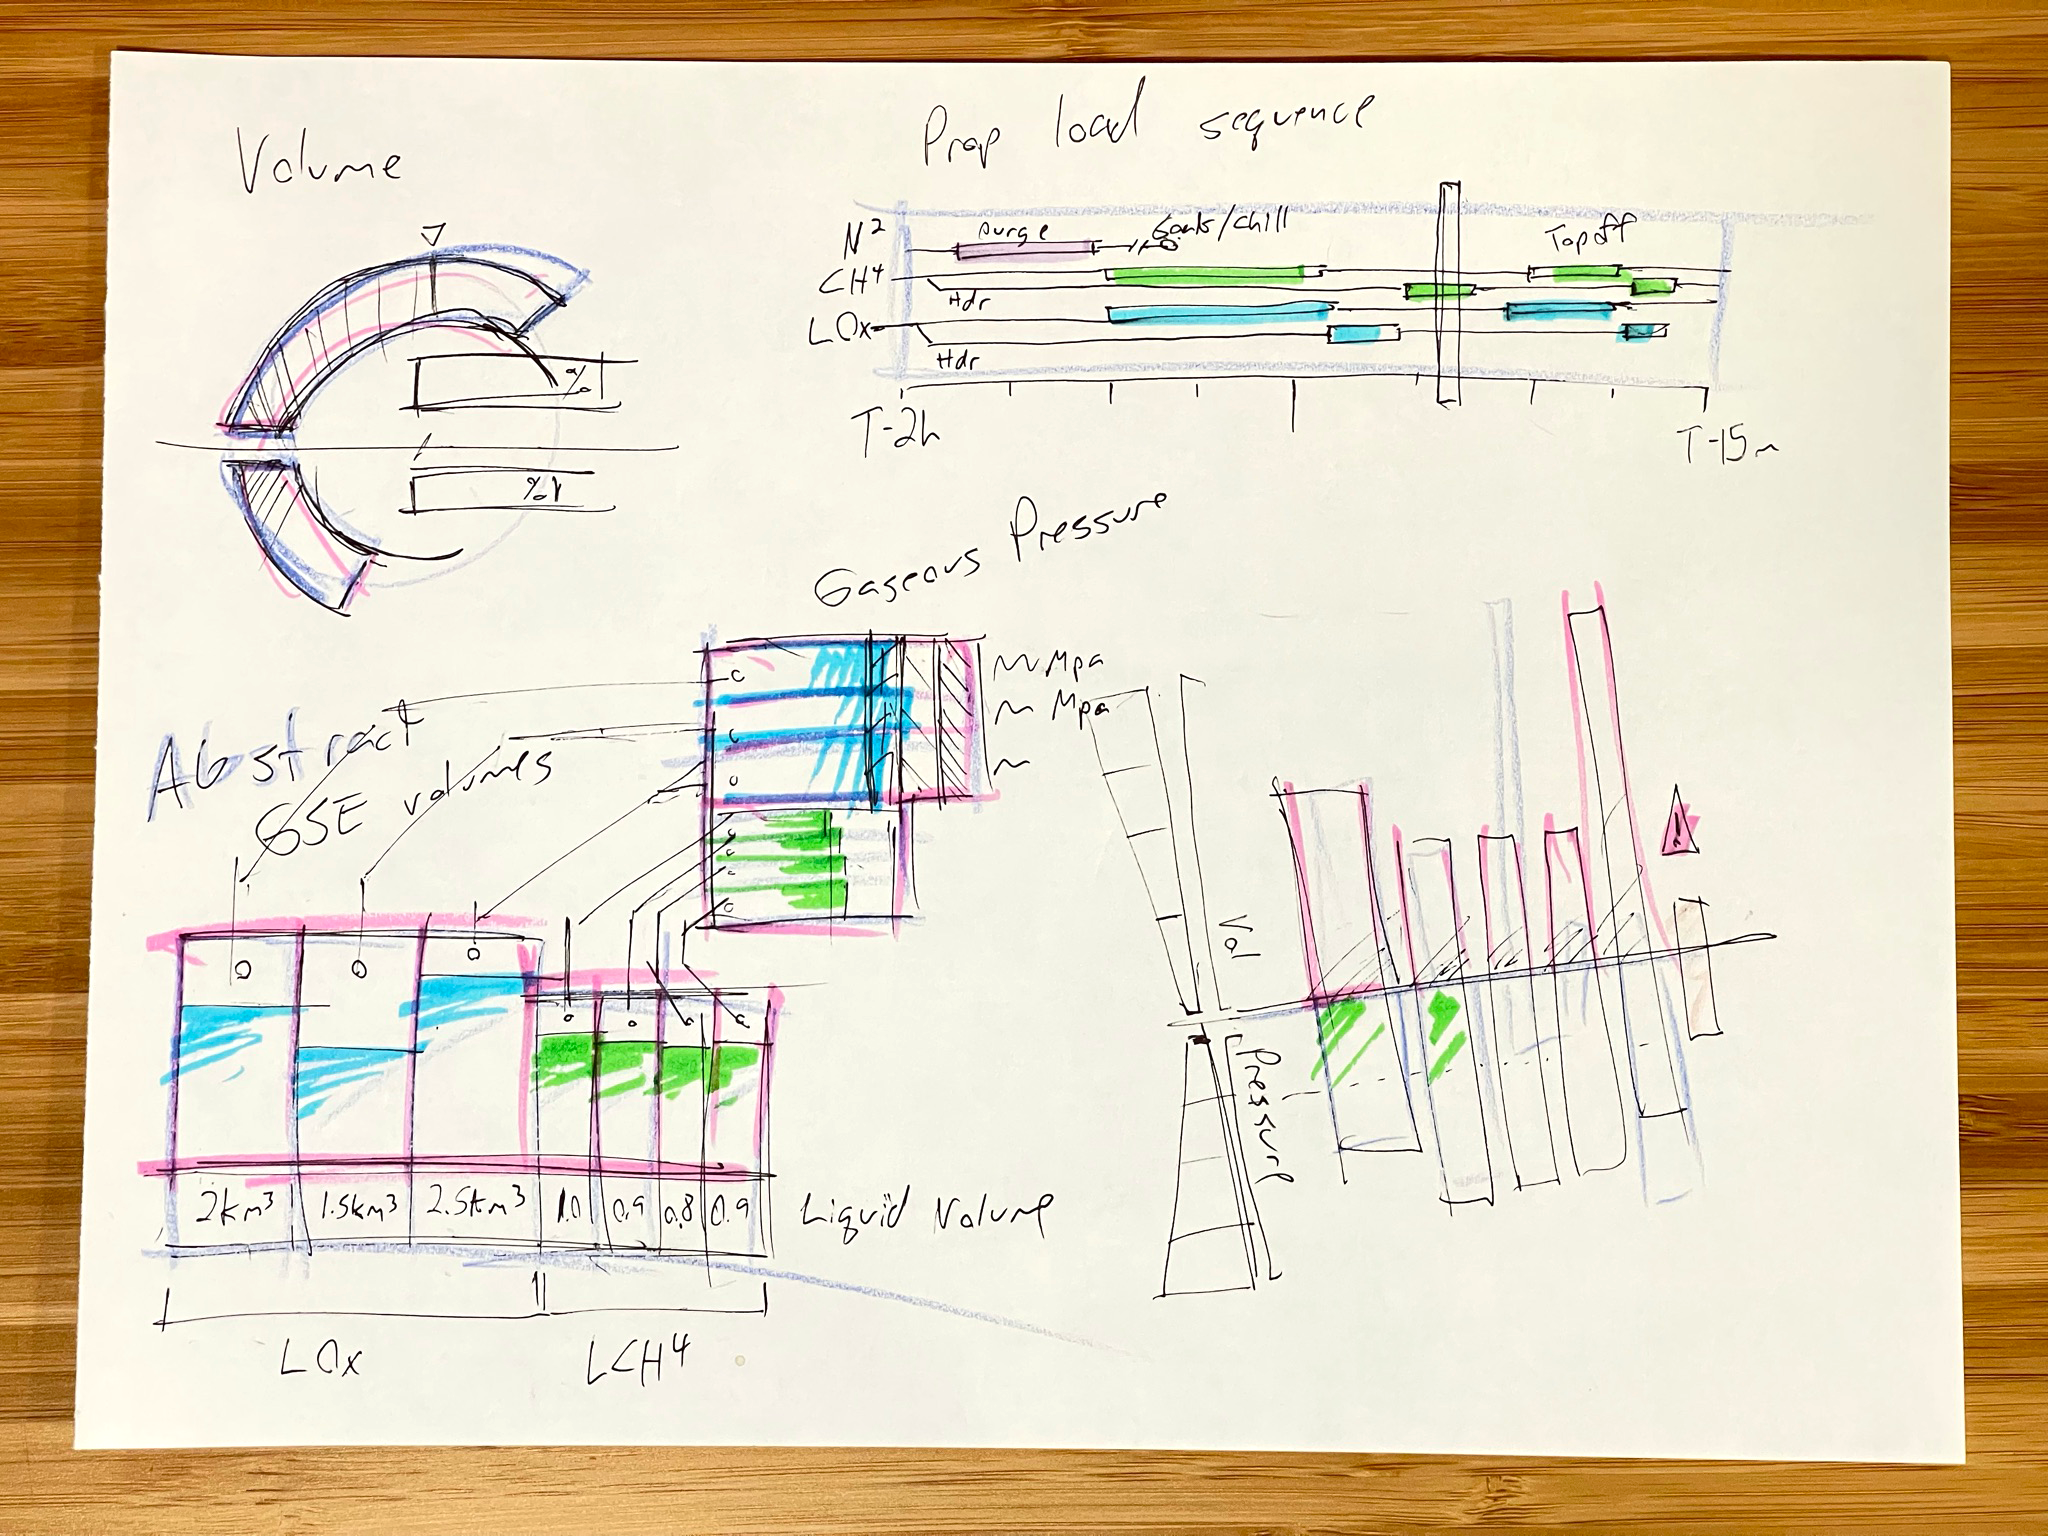 Volume
%
%
Prop load sequence
N²
purge
/chill
Topoff
CH⁴
Hdr
LOx
Hdr
T-2h
T-15m
Gaseous Pressure
Mpa
Mpa
Abstract
GSE volumes
2km³
1.5km³
2.5km³
1.0
0.9
0.8
0.9
Liquid Volume
LOx
LCH⁴
Vol
Pressure
!